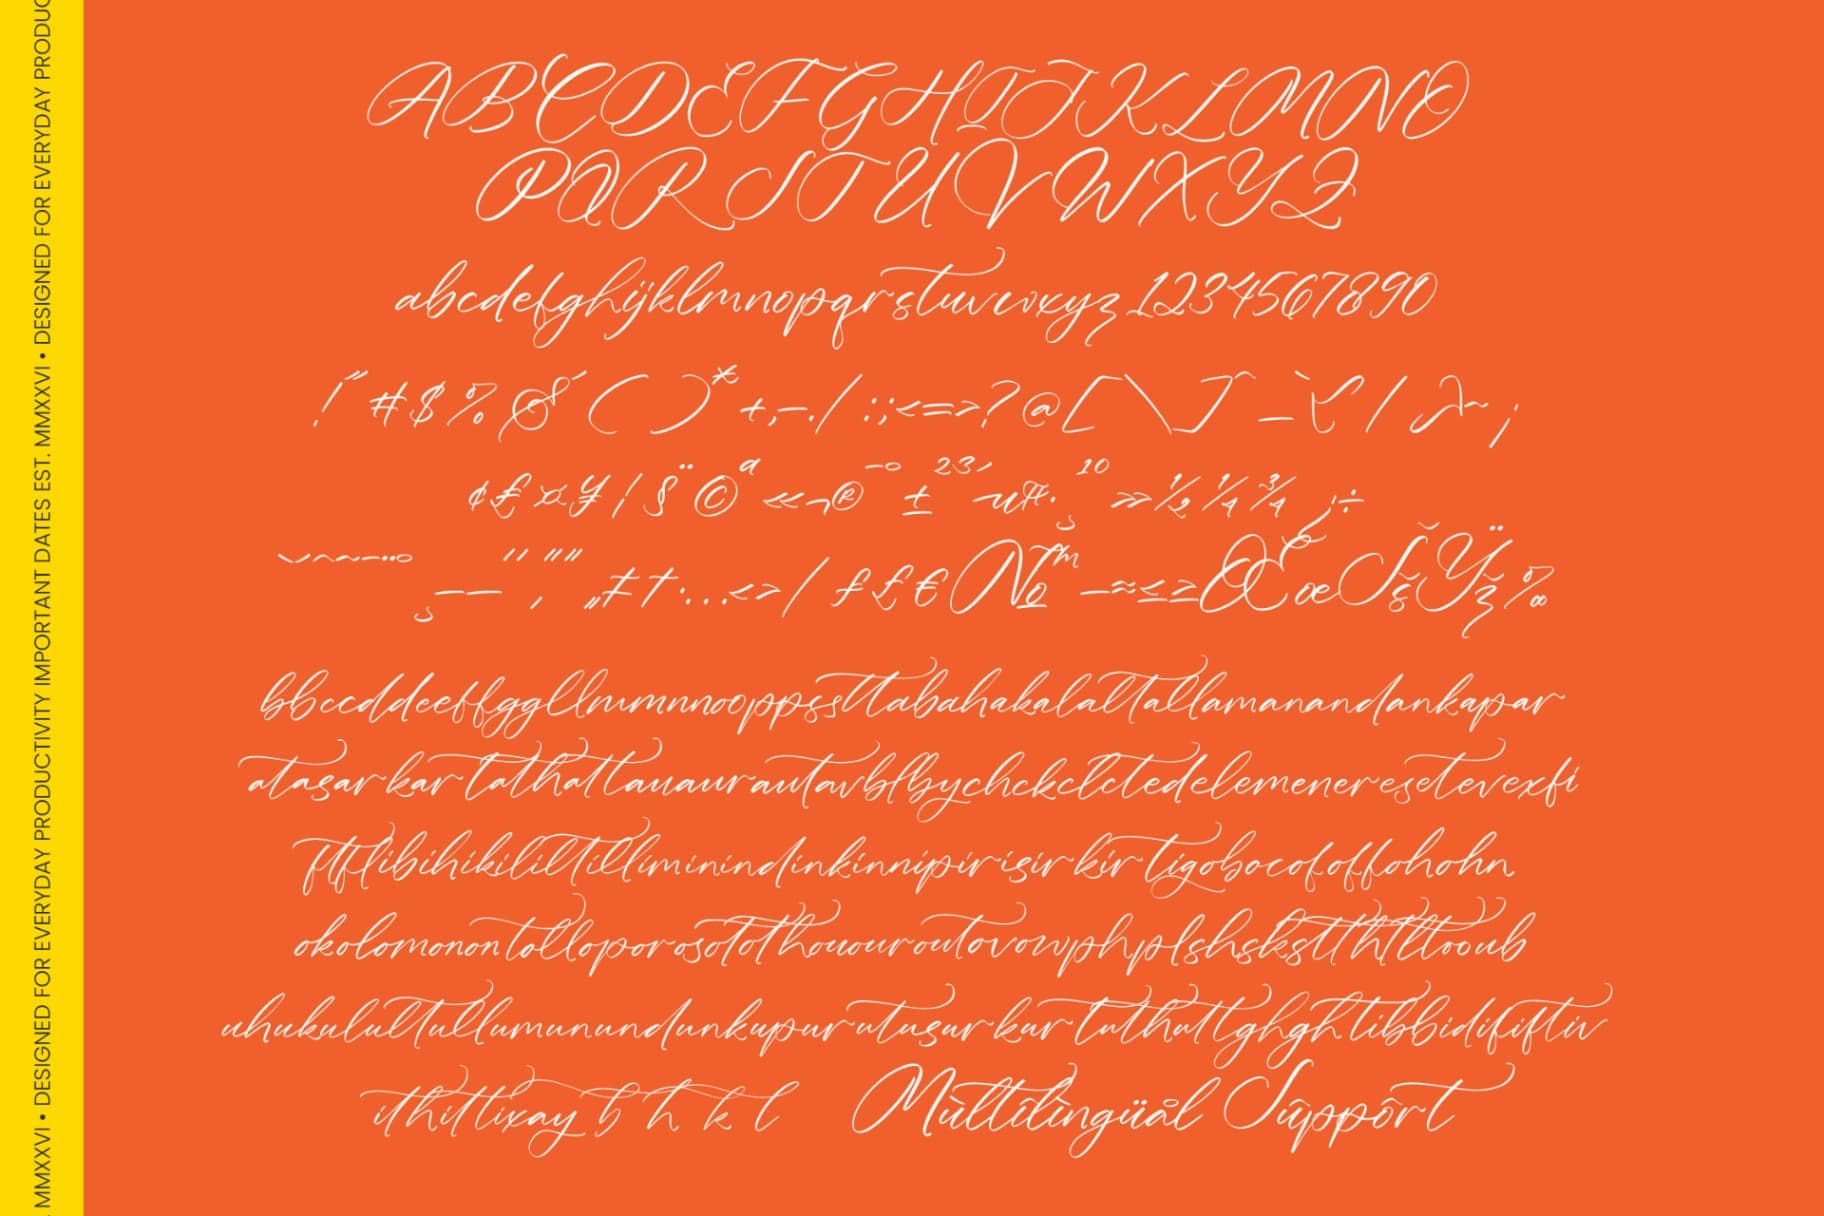 DESIGNED FOR EVERYDAY PRODUCTIVITY IMPORTANT DATES EST. MMXXVI • DESIGNED FOR EVERYDAY PRODUC
MMXXVI •
ABCDEFGHIJKLMNO
PQRSTUVWXYZ
abcdefghijklmnopqrstuvwxyz 1234567890
!"#$%&'()*+,-./:;<=>?@[\]^_`{|}~¡
¢£¤¥¦§¨©ª«¬®¯°±²³´µ¶·¸¹º»¼½¾¿÷
†‡•…‹›⁄ƒ£€№™−≈≤≥ŒœŠšŸž‰
bbccddeeffggllmmnnooppssttabahakalaltallamanandankapar
atasarkartathattauaurautavblbychckclctedelemeneresetevexfi
ftftlibihikililtilliminindinkinnipirisirkirtigobocofoffohohn
okolomonontolloporosototthououroutovowphplshskstthtlttooub
uhukulultullumunundunkupurutusurkurtuthuttghghtibbidififtiv
ithittixay b h k l Mùltîlìngüål Sûppôrt